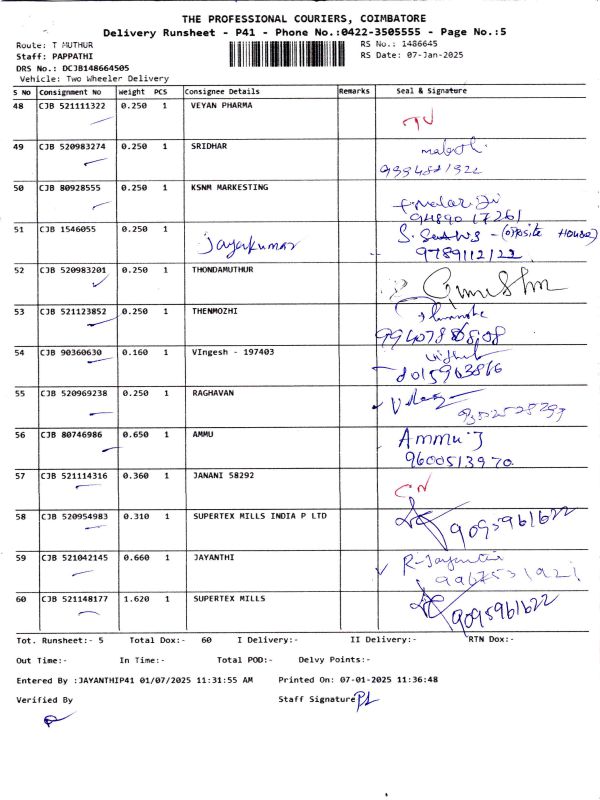 THE PROFESSIONAL COURIERS, COIMBATORE
Delivery Runsheet - P41 - Phone No.:0422-3505555 - Page No.:5
Route: T MUTHUR RS No.: 1486645
Staff: PAPPATHI RS Date: 07-Jan-2025
DRS No.: DCJB148664505
Vehicle: Two Wheeler Delivery
S No Consignment No Weight PCS Consignee Details Remarks Seal & Signature
48 CJB 521111322 0.250 1 VEYAN PHARMA
49 CJB 520983274 0.250 1 SRIDHAR
50 CJB 80928555 0.250 1 KSNM MARKESTING
9489017261
51 CJB 1546055 0.250 1 Jayakumar (Opposite House)
9789112122
52 CJB 520983201 0.250 1 THONDAMUTHUR
53 CJB 521123852 0.250 1 THENMOZHI
54 CJB 90360630 0.160 1 VIngesh - 197403
8015963866
55 CJB 520969238 0.250 1 RAGHAVAN
56 CJB 80746986 0.650 1 AMMU Ammu.J
9600513970
57 CJB 521114316 0.360 1 JANANI 58292
58 CJB 520954983 0.310 1 SUPERTEX MILLS INDIA P LTD 9095961622
59 CJB 521042145 0.660 1 JAYANTHI R-Jayanthi
60 CJB 521148177 1.620 1 SUPERTEX MILLS 9095961622
Tot. Runsheet:- 5 Total Dox:- 60 I Delivery:- II Delivery:- RTN Dox:-
Out Time:- In Time:- Total POD:- Delvy Points:-
Entered By :JAYANTHIP41 01/07/2025 11:31:55 AM Printed On: 07-01-2025 11:36:48
Verified By Staff Signature